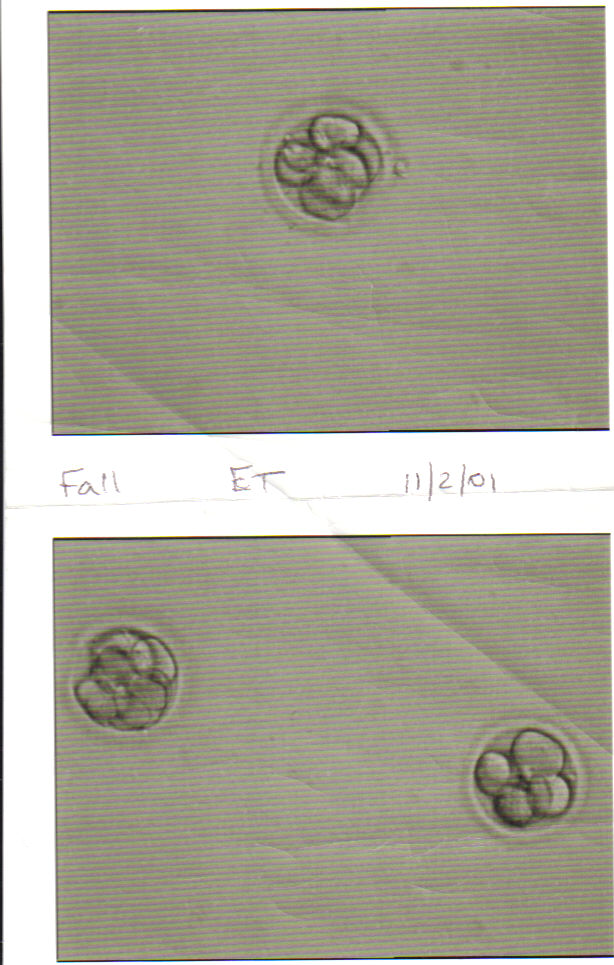 Fall ET 11/2/01